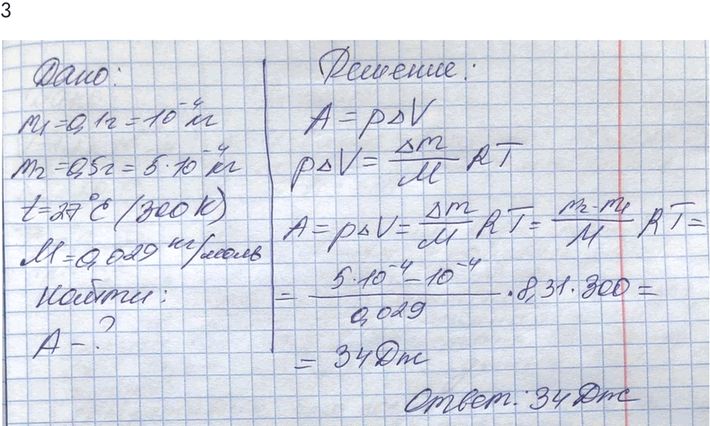 3
Дано:
m₁=0,1г=10⁻⁴кг
m₂=0,5г=5·10⁻⁴кг
t=27°C (300К)
M=0,029 кг/моль
Найти:
A-?
Решение:
A=pΔV
pΔV= Δm/M RT
A=pΔV= Δm/M RT= m₂-m₁/M RT=
= 5·10⁻⁴-10⁻⁴/0,029 ·8,31·300=
= 34Дж
Ответ: 34Дж